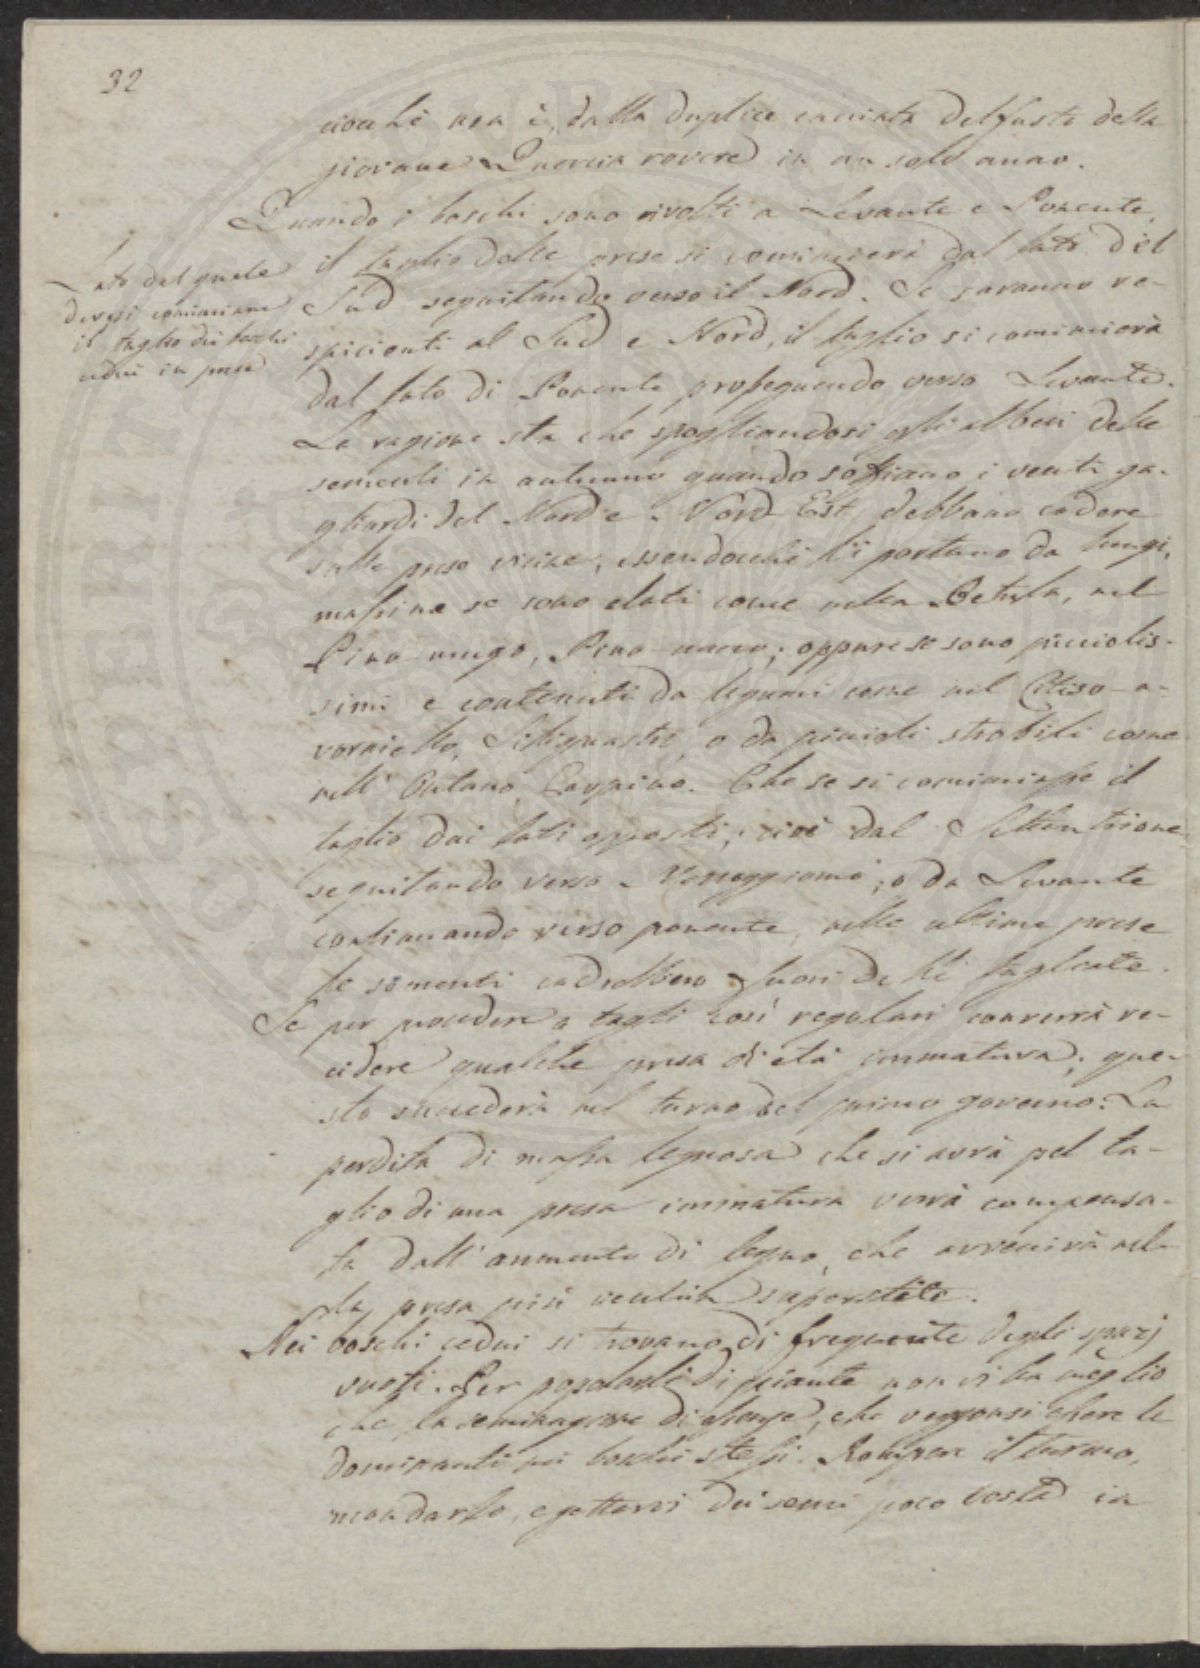 32
cioché non è dalla duplice cacciata del fusto della
giovane Quercia rovere in un solo anno.
Quando i boschi sono rivolti a Levante e Ponente,
Lato dal quale
devesi cominciare
il taglio dei boschi
cedui in presa
il taglio delle prese si comincierà dal lato del
Sud seguitando verso il Nord. Se saranno re-
spicienti al Sud e Nord, il taglio si comincierà
dal lato di Ponente proseguendo verso Levante.
La ragione sta che spogliandosi gli alberi delle
sementi in autunno quando soffiano i venti ga-
gliardi del Nord e Nord Est debbano cadere
sulle prese vicine, essendoché li portano da lungi,
massime se sono alati come nella Betula, nel
Pino mugo, Pino nano; oppure se sono picciolis-
simi e contenuti da legumi come nel Citiso a-
vorniello, Siliquastro, o da piccioli strobili come
nell' Ontano, Carpino. Che se si cominciasse il
taglio dai lati opposti, cioè dal Settentrione
seguitando verso Mezzogiorno, o da Levante
continuando verso ponente, nelle ultime prese
le sementi cadrebbero fuori delle tagliate.
Se per procedere a tagli così regolari converrà re-
cidere qualche presa di età immatura; que-
sto succederà nel turno del primo governo. La
perdita di massa legnosa che si avrà pel ta-
glio di una presa immatura verrà compensa-
ta dall' aumento di legno, che avvenirà nel-
la presa più vecchia superstite.
Nei boschi cedui si trovano di frequente degli spazj
vuoti. Per popolarli di piante non vi ha meglio
che la seminagione di ghiande, che veggonsi essere le
dominanti nei boschi stessi. Rompere il terreno,
mondarlo, e gettarvi dei semi poco costa in